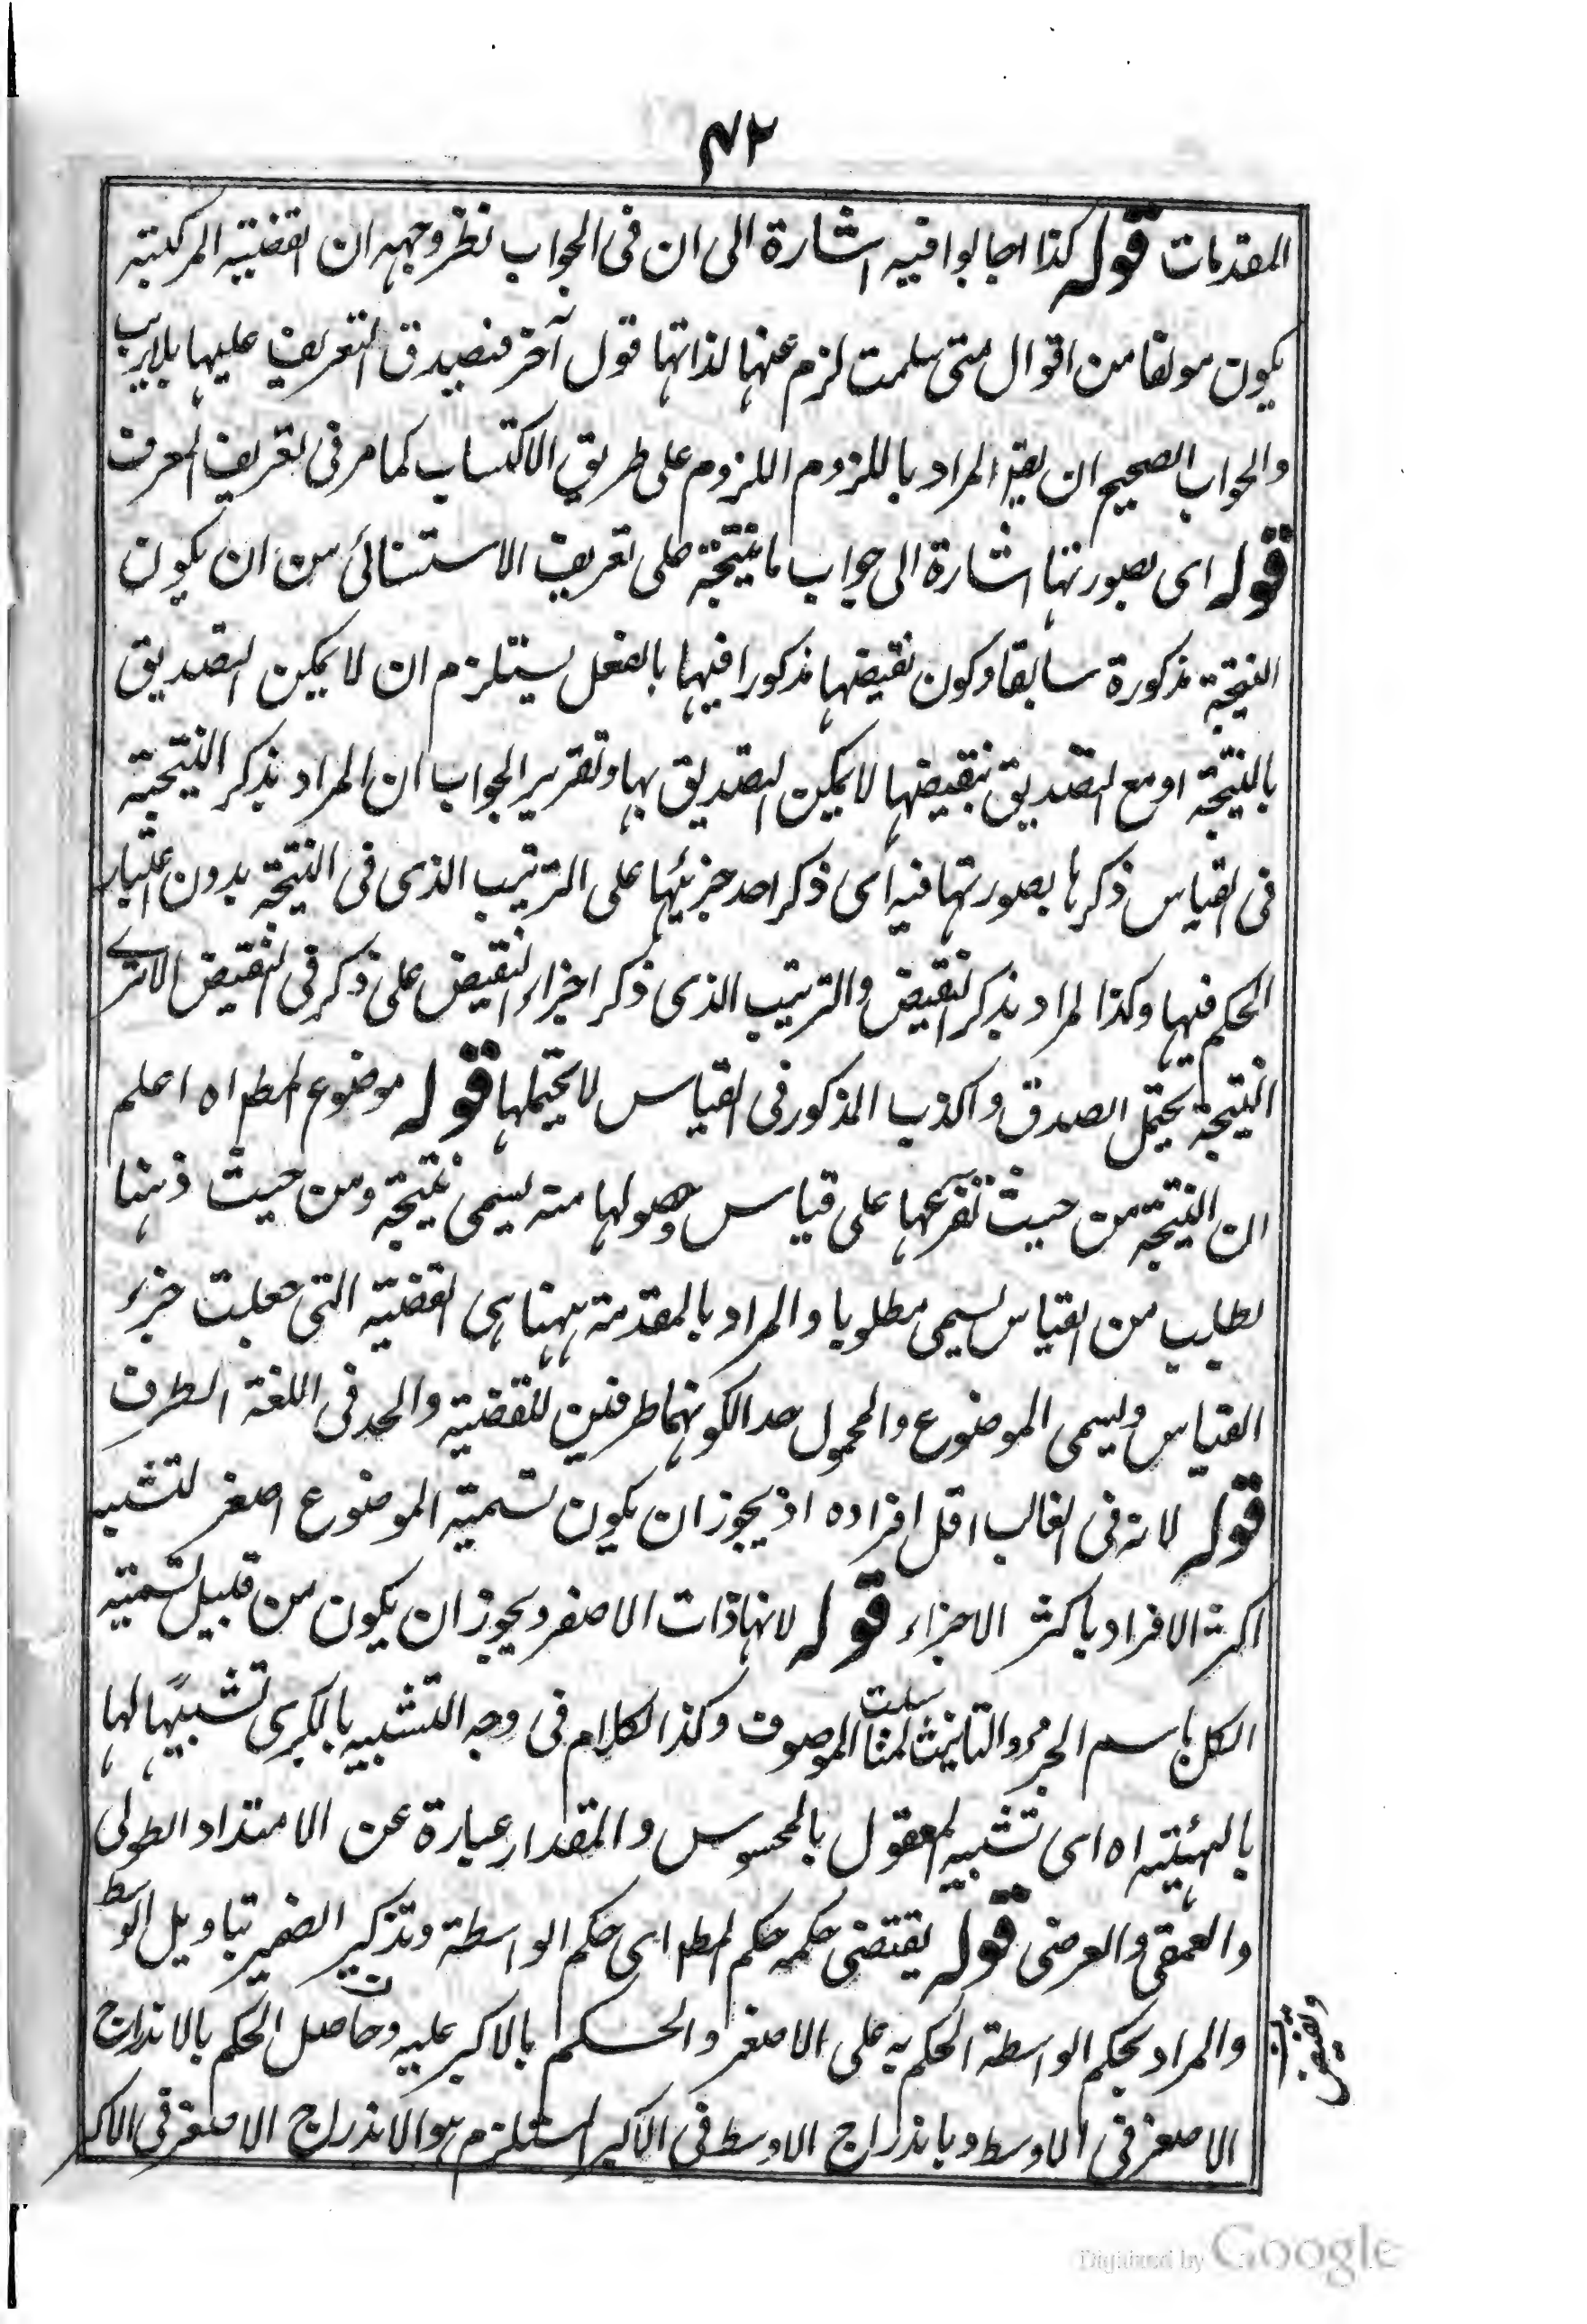 ٤٢
المقدمات قوله كذا اجابوا فيه اشارة الى ان فى الجواب نظر وجهه ان القضية المركبة
يكون مولفا من اقوال متى سلمت لزم عنها لذاتها قول آخر فيصدق التعريف عليها بلا ريب
والجواب الصحيح ان يقال المراد باللزوم اللزوم على طريق الاكتساب كما مر فى تعريف المعرف
قوله اى بصورتها اشارة الى جواب ما على تعريف الاستثنائى من ان يكون
النتيجة مذكورة سابقا وكون نقيضها مذكورا فيها بالفعل يستلزم ان لا يمكن التصديق
بالنتيجة او مع التصديق بنقيضها لا يمكن التصديق بها وتقرير الجواب ان المراد بذكر النتيجة
فى القياس ذكرها بصورتها فيه اى ذكر احد جزئيها على الترتيب الذى فى النتيجة بدون اعتبار
الحكم فيها وكذا المراد بذكر النقيض والترتيب الذى ذكر اجزاء النقيض على ذكر فى النقيض الا ترى
النتيجة يحتمل الصدق والكذب المذكور فى القياس لا يحتملها قوله موضوع المط اه اعلم
ان النتيجة من حيث تفرعها على قياس وحصولها منه يسمى نتيجة ومن حيث
يطلب من القياس يسمى مطلوبا والمراد بالمقدمة ههنا هى القضية التى جعلت جزء
القياس ويسمى الموضوع والمحمول حدا لكونهما طرفين للقضية والحد فى اللغة الطرف
قوله لانه فى الغالب اقل افراده اذ يجوز ان يكون تسمية الموضوع اصغر لتشبيه
اكثر الافراد باكثر الاجزاء قوله لانها ذات الاصغر ويجوز ان يكون من قبيل تسمية
الكل باسم الجزء والتانيث لمناسبت الموصوف وكذا الكلام فى وجه التشبيه بالكبرى تشبيهًا لها
بالهيئة اه اى تشبيه المعقول بالمحسوس والمقدار عبارة عن الامتداد الطولى
والعمقى والعرضى قوله يقتضى حكمه حكم المط اى حكم الواسطة وتذكير الضمير بتاويل الوسط
والمراد بحكم الواسطة الحكم به على الاصغر والحكم بالاكبر عليه وحاصل الحكم بالاندراج
الاصغر فى الاوسط وباندراج الاوسط فى الاكبر استلزم هو الاندراج الاصغر فى الاكبر
Digitized by Google